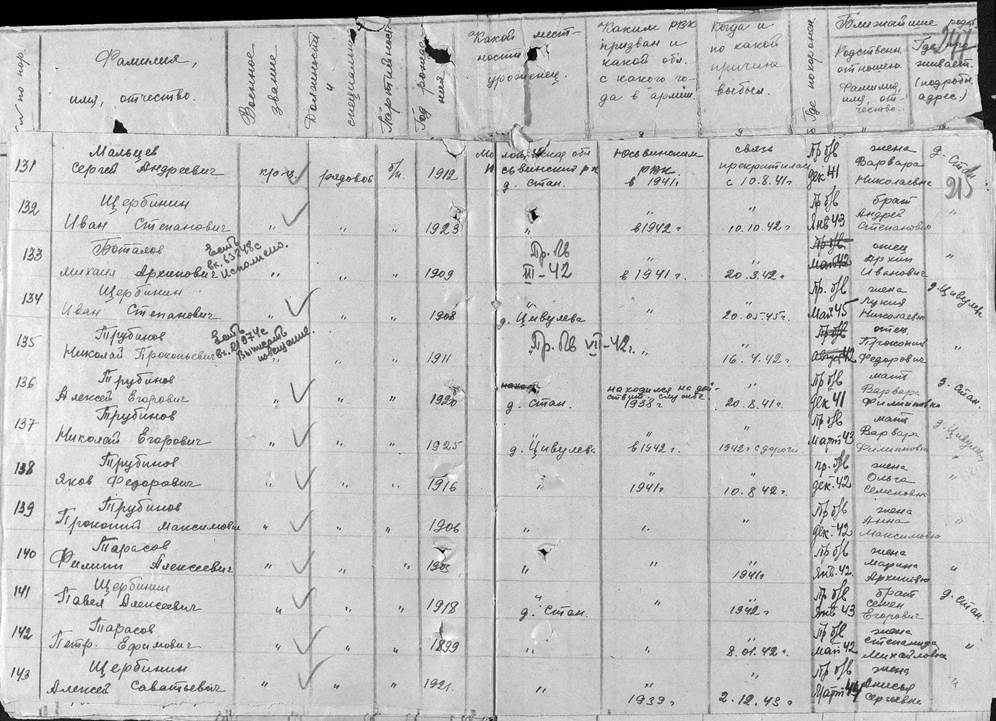 Фамилия,
имя, отчество.
Военное звание
Должность и специальн.
Партийность
Год рождения
Какой местности уроженец.
Каким РВК призван и какой обл. с какого года в армии.
Когда и по какой причине выбыл.
Ближайшие родств.
Родственн. отношение. Фамилия, имя, отчество.
Где проживает. (подробн. адрес.)
247
215
131 Мальцев
Сергей Андреевич рядовой б/п. 1912 д. Стан. Юсьвинским РВК в 1941г. связь прекратилась с 10.8.41г Пр б/в дек 41 жена Варвара Николаевна д. Стан
132 Щербинин
Иван Степанович " " " 1923 " " в 1942г " 10.10.42г Пр б/в Янв 43 брат Андрей Степанович "
133 Боталов
Михаил Архипович Есть вх. 63748с Исполнено. " " " 1909 Пр. б/в III-42 " в 1941г. " 20.3.42г Пр б/в май 42 отец Архип Иванович
134 Щербинин
Иван Степанович " " " 1908 " д. Цивулева " " 20.05.45г. Пр. б/в Май 45 жена Лукия Николаевна д. Цивулева
135 Трубинов
Николай Прокопьевич Есть Выслать извещение. " " 1911 Пр. б/в VII-42г. " " 16.4.42г Пр б/в отец Прокопий Федорович
136 Трубинов
Алексей Егорович " " " 1920 д. Стан. находился на действит. службе 1938г " 20.8.41г. Пр б/в дек 41 мать Варвара Филипповна д. Стан
137 Трубинов
Николай Егорович " " " 1925 " д. Цивулева " в 1942г. " 1942г с дороги Пр б/в Март 43 мать Варвара Филипповна д. Цивулева
138 Трубинов
Яков Федорович " " " 1916 " " 1941г " 10.8.42г. пр. б/в дек. 42 жена Ольга Семеновна "
139 Трубинов
Прокопий Максимович " " " 1906 " " " Пр б/в дек. 42 жена Анна Максимовна "
140 Тарасов
Филипп Алексеевич " " " " " 1941г Пр б/в Янв. 42 жена Марина Архиповна "
141 Щербинин
Павел Алексеевич " " " 1918 " д. Стан. " " 1942г Пр б/в Янв 43 брат Семен Егорович д. Стан.
142 Тарасов
Петр. Ефимович " " " 1899 " " " 8.01.42г. Пр б/в май 42 жена Степанида Михайловна "
143 Щербинин
Алексей Саватьевич " " " 1921. " " 1939г " 2.12.43г Пр б/в Март 44 жена Анисья Сергеевна "